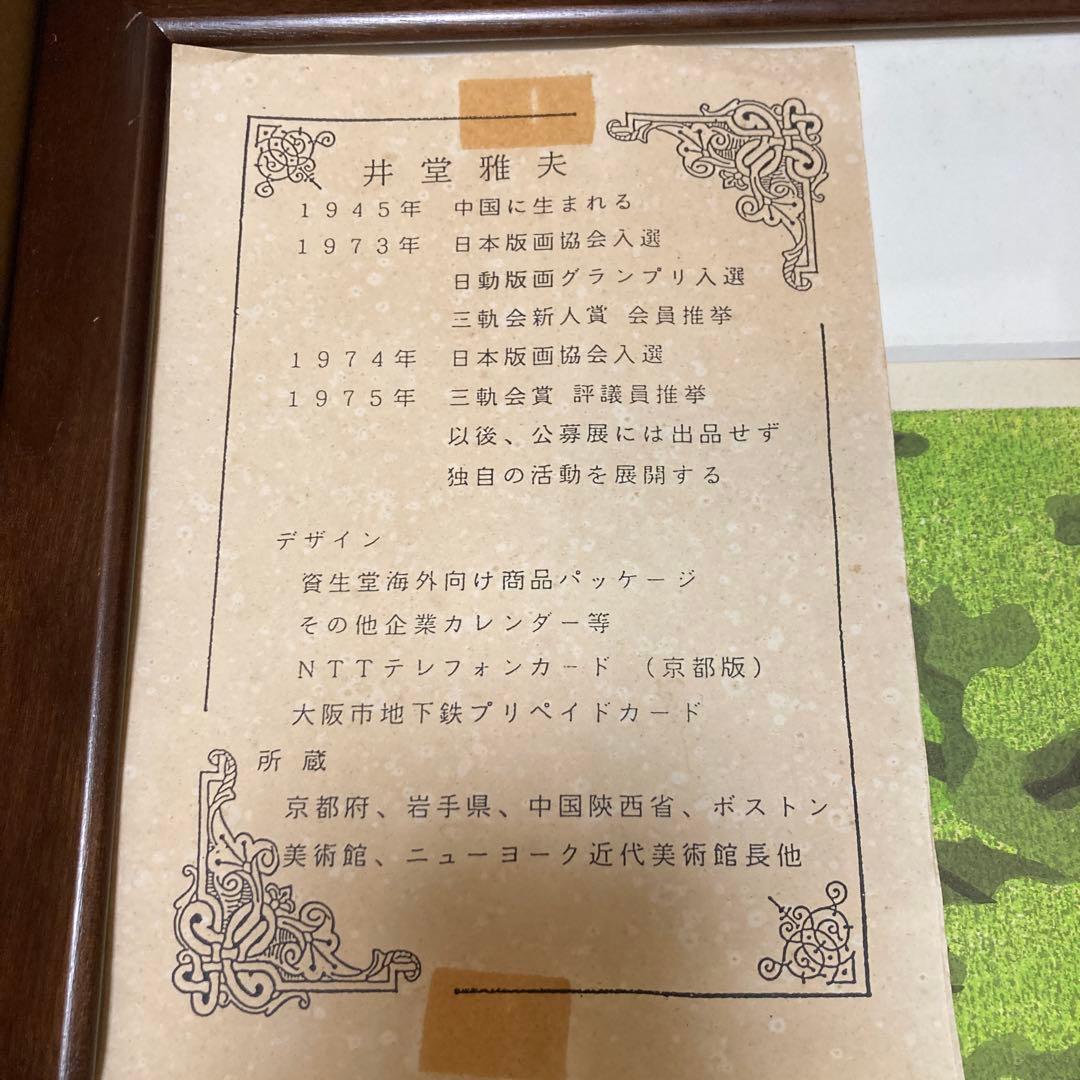 井堂雅夫
1945年 中国に生まれる
1973年 日本版画協会入選
日動版画グランプリ入選
三軌会新人賞 会員推挙
1974年 日本版画協会入選
1975年 三軌会賞 評議員推挙
以後、公募展には出品せず
独自の活動を展開する
デザイン
資生堂海外向け商品パッケージ
その他企業カレンダー等
NTTテレフォンカード (京都版)
大阪市地下鉄プリペイドカード
所蔵
京都府、岩手県、中国陜西省、ボストン
美術館、ニューヨーク近代美術館長他